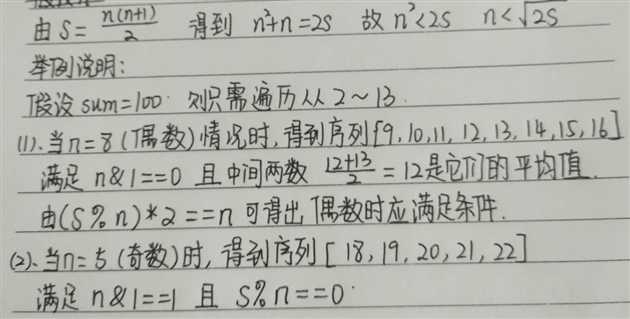 由 S = n(n+1)/2 得到 n²+n=2S 故 n²<2S n<√2S
举例说明:
假设 sum=100. 则只需遍历从 2~13.
(1).当n=8(偶数)情况时,得到序列[9,10,11,12,13,14,15,16]
满足 n&1==0 且中间两数 (12+13)/2 =12是它们的平均值.
由(S%n)*2==n 可得出 偶数时应满足条件.
(2).当n=5(奇数)时,得到序列[18,19,20,21,22]
满足 n&1==1 且 S%n==0.